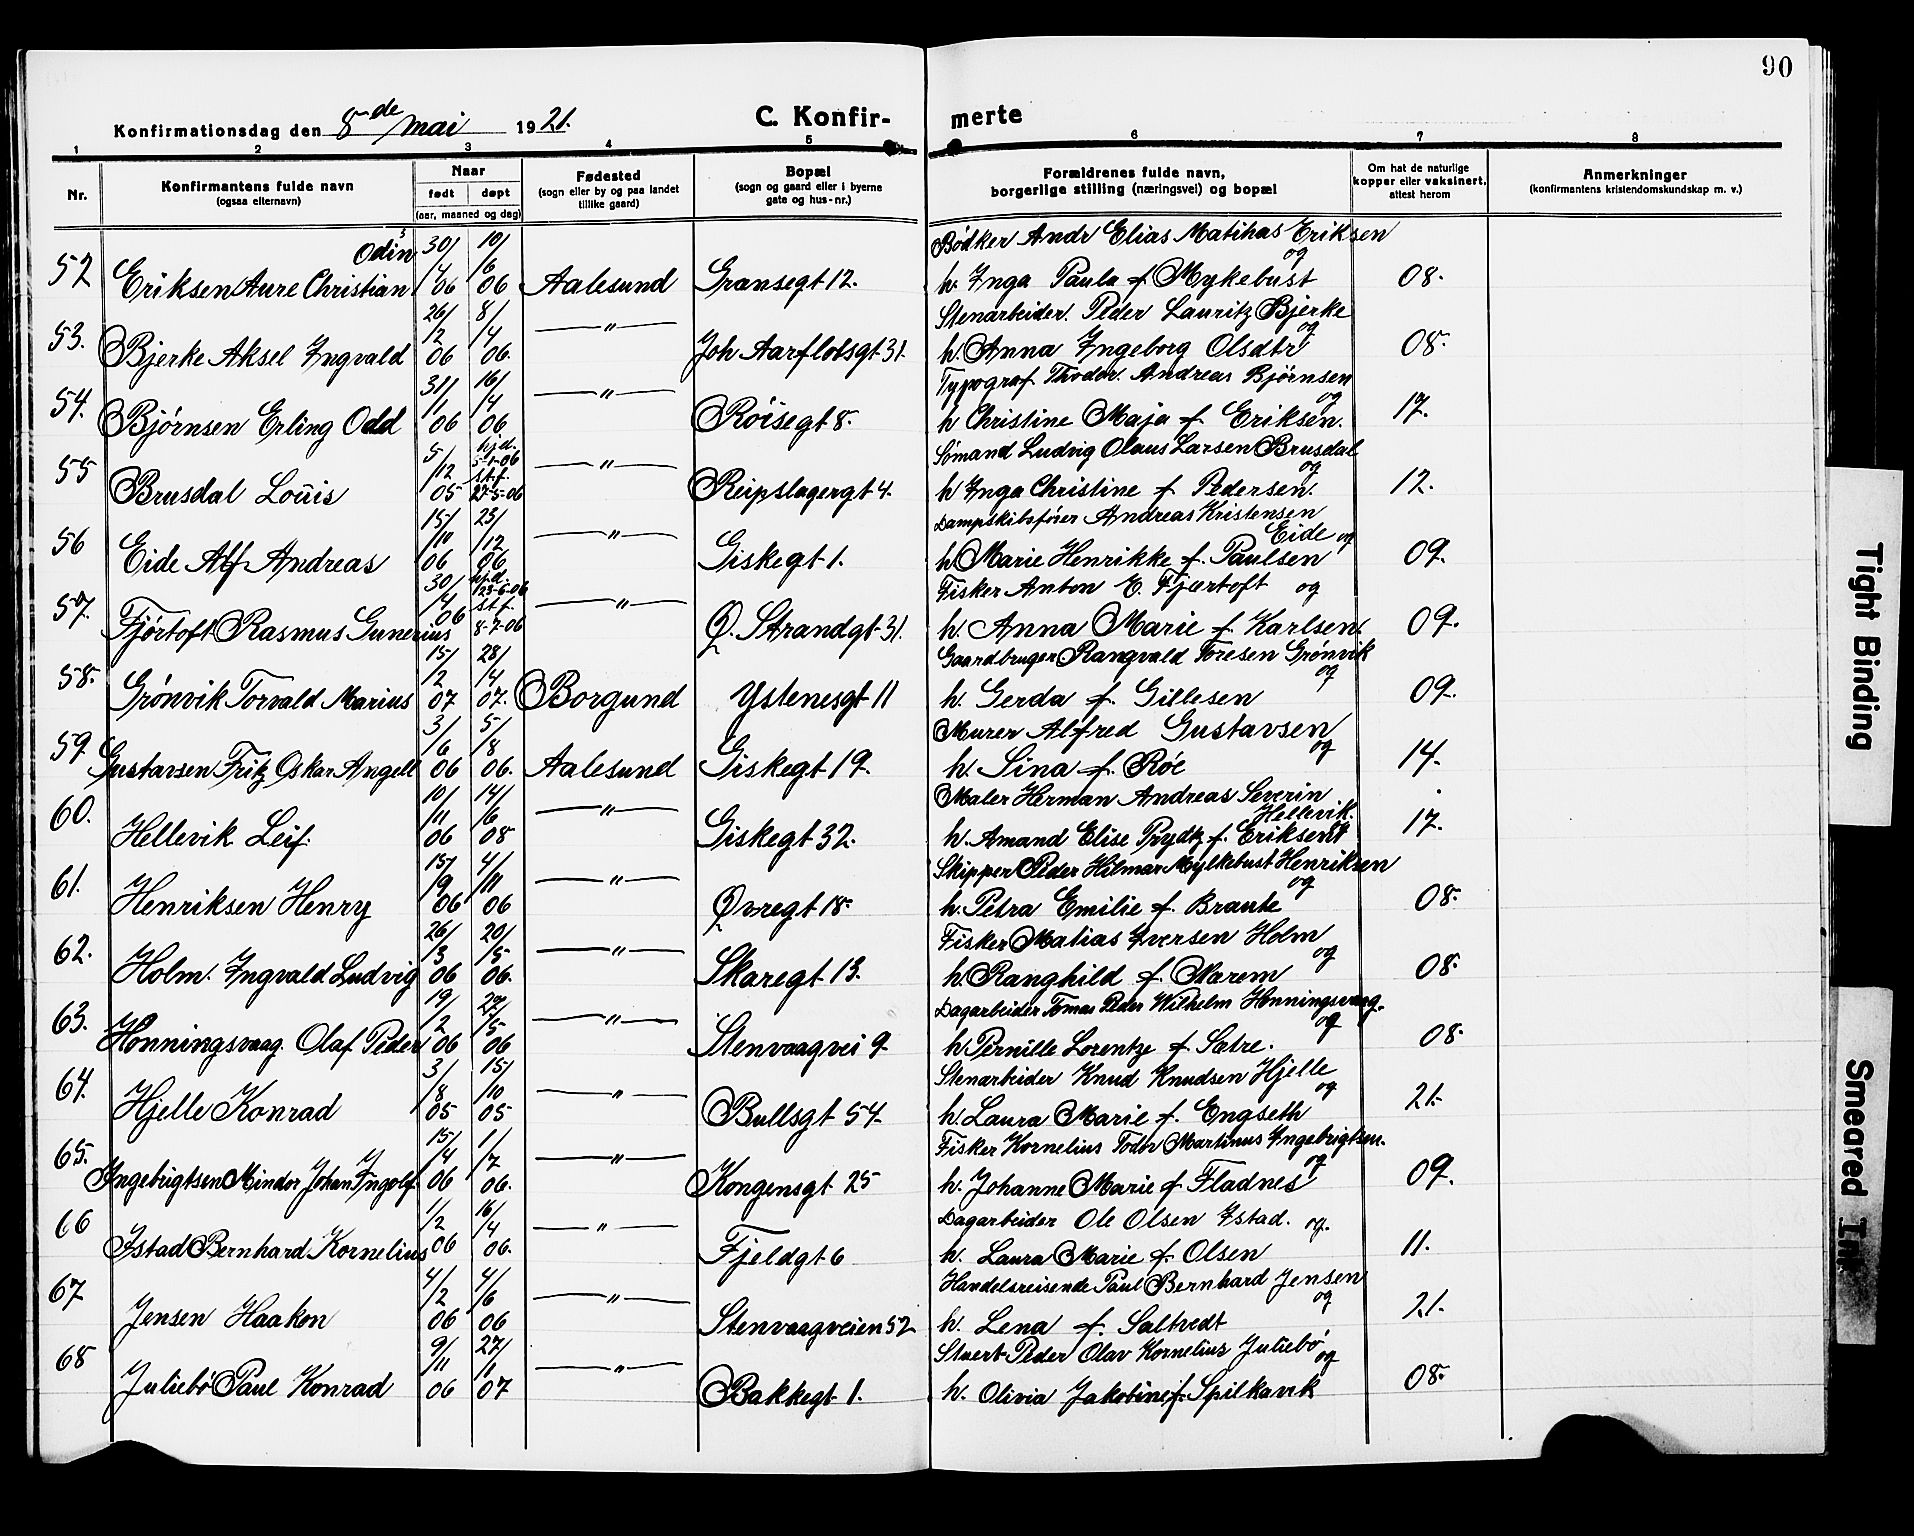 90
Konfirmationsdag den 8de mai 1921.
C. Konfir-
merte
1 2 3 4 5 6 7 8
Nr.
Konfirmantens fulde navn
(ogsaa efternavn)
Naar
født døpt
(aar, maaned og dag)
Fødested
(sogn eller by og paa landet
tillike gaard)
Bopæl
(sogn og gaard eller i byerne
gate og hus-nr.)
Forældrenes fulde navn,
borgerlige stilling (næringsvei) og bopæl
Om hat de naturlige
kopper eller vaksinert,
attest herom
Anmerkninger
(konfirmantens kristendomskundskap m. v.)
Odin 30/ 10/ Bødker Andr Elias Mathias Eriksen
og
52 Eriksen Aure Christian 06 /6 06 Aalesund Gransegt 12. h. Inga Paula f Myklebust 08.
26/ 8/ Stenarbeider. Peder Lauritz Bjerke
/2 /4 — " — og
53. Bjerke Aksel Ingvald 06 06. Joh Aarflotsgt 31. h. Anna Ingeborg Olsdtr 08.
31/ 16/ Typograf Thodor. Andreas Bjørnsen
/1 /4 — " — og
54. Bjørnsen Erling Odd 06 06 Røisegt 8. h Christine Maja f Eriksen. 17.
5/ hjd. Sømand Ludvig Olaus Larsen Brusdal
/12 5-1-06 st.f. — " — og
55 Brusdal Louis 05 27-5-06 Reipslagergt 4. h Inga Christine f Pedersen. 12.
15/ 23/ Dampskibsfører Andreas Kristensen
/10 /12 — " — Eide og
56 Eide Alf Andreas 06 06 Giskegt 1. h Marie Henrikke f. Paulsen 09.
30/ hjd. 23-6-06 Fisker Anton E. Fjærtoft og
/4 st f. — " —
57. Fjørtoft Rasmus Gunerius 06 8-7-06 Ø. Strandgt 31. h. Anna Marie f Karlsen. 09.
15/ 28/ Gaardbruger Rangvald Toresen Grønvik
/2 /4 og
58. Grønvik Torvald Marius 07 07. Borgund Ystenesgt 11 h. Gerda f Gillesen 09.
3/ 5/ Murer Alfred Gustavsen
/6 /8 og
59. Gustavsen Fritz Oskar Angell 06 06. Aalesund Giskegt 19. h. Sina f. Røe 14.
10/ 14/ Maler Herman Andreas Severin
/11 /6 — " — Hellevik.
60. Hellevik Leif. 06 08 Giskegt 32. h. Amand Elise Prydtz f. Eriksen 17.
15/ 4/ Skipper Peder Hilmar Myklebust Henriksen
/9 /11 — " — og
61. Henriksen Henry 06 06 Øvregt 18. h. Petra Emilie f. Braute 08.
26/ 20/ Fisker Matias Iversen Holm
/3 /5 — " — og
62. Holm. Ingvald Ludvig 06 06. Skaregt 13. h. Ranghild f. Marem 08.
19/ 27/ Dagarbeider Tomas Peder Wilhelm Honningsvaag.
/2 /5 — " — og
63. Honningsvaag. Olaf Peder 06 06 Stenvaagvei 9. h Pernille Lorentze f Sætre. 08.
3/ 15/ Stenarbeider Knud Knudsen Hjelle
/8 /10 — " — og
64. Hjelle Konrad 05 05 Bullsgt 54. h. Laura Marie f. Engseth 21.
15/ 1/ Fisker Kornelius Todor Martinus Ingebrigtsen.
/4 /7 — " — og
65. Ingebrigtsen Mindor Johan Ingolf 06 06. Kongensgt 25 h. Johanne Marie f Fladnes 09.
1/ 16/ Dagarbeider Ole Olsen Istad. og.
/2 /4 — " —
66 Istad Bernhard Kornelius 06 06. Fjeldgt 6 h. Laura Marie f. Olsen 11.
4/ 4/ Handelsreisende Paul Bernhard Jensen
/2 /6 — " — og
67 Jensen Haakon 06 06 Stenvaagveien 52 h. Lena f. Saltvedt 21.
9/ 27/ Stuert Peder Olav Kornelius Juliebø
/11 /1 — " — og
68 Juliebø Paul Konrad 06 07 Bakkegt 1. h. Olivia Jakobine f. Spilkavik 08.
Tight Binding
Smeared Ink